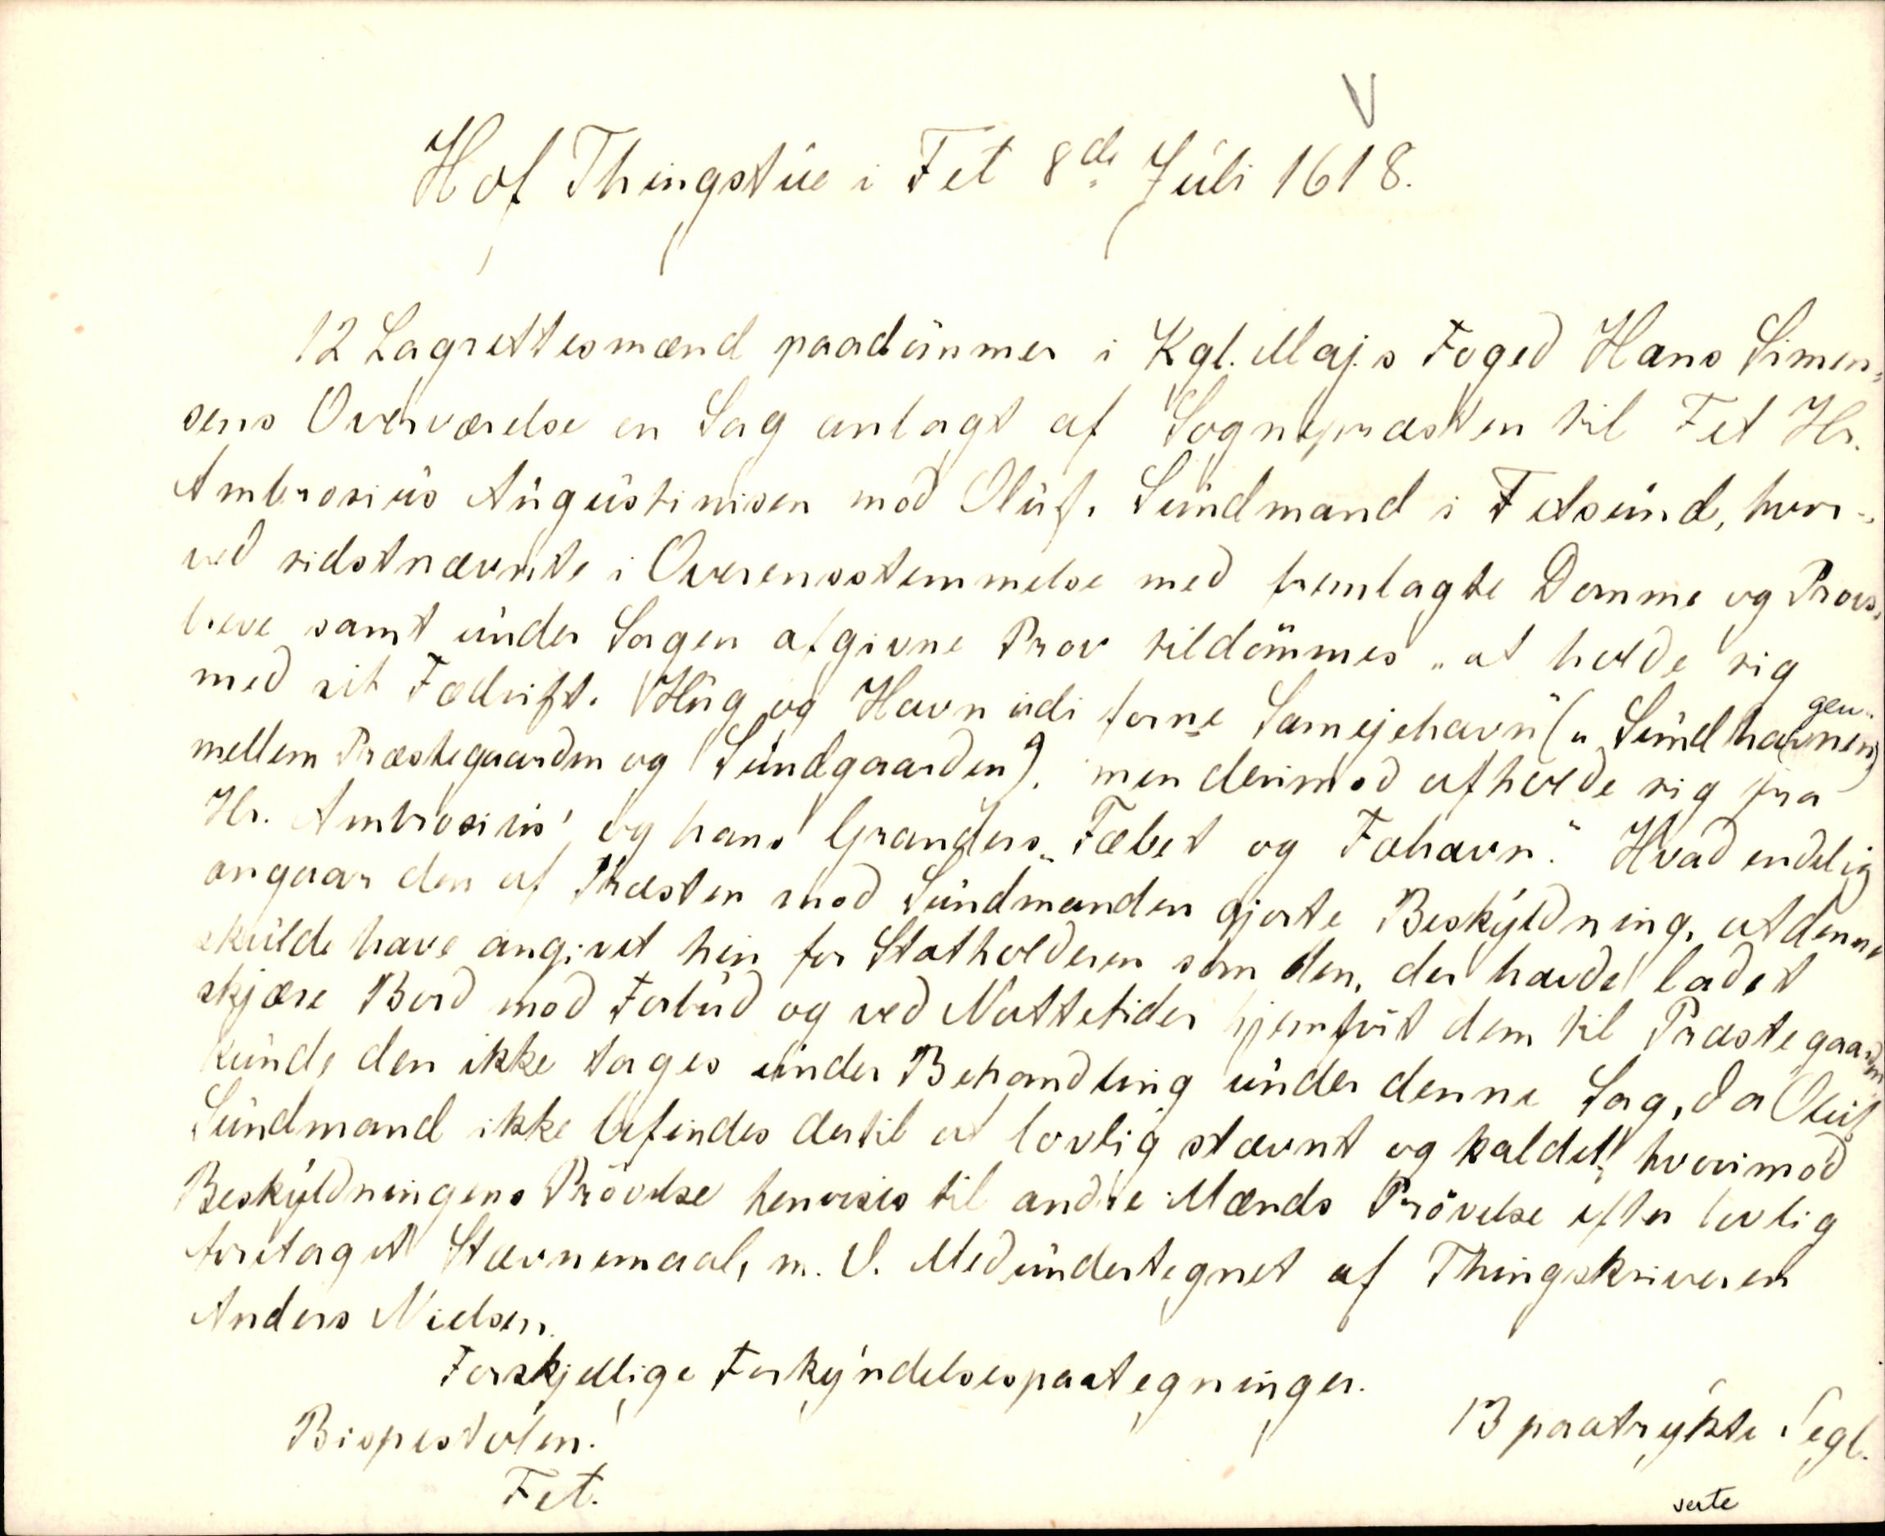 V
Hof Thingstue i Fet 8de Juli 1618.
12 Lagrettesmænd paadömmer i Kgl. Maj.s Foged Hans Simen-
sens Overværelse en Sag anlagt af Sognepræsten til Fet Hr.
Ambrosius Augustinisen mod Oluf Sundmand i Fetsund, hvor-
ved sidstnævnte i Overensstemmelse med fremlagte Domme og Provs-
breve samt under Sagen afgivne Prov tildömmes „at holde sig
med sit Fædrift, Hug og Havn udi forne Samejehavn" („Sundhavnen,
gen"
mellem Præstegaarden og Sundgaarden), men derimod afholde sig fra
Hr. Ambrosius' og hans Granders „Fæbet og Fæhavn." Hvad endelig
angaar den af Præsten mod Sundmanden gjorte Beskyldning, at denne
skulde have angivet hin for Statholderen som den, der havde ladet
skjære Bord mod Forbud og ved Nattetider hjemfört dem til Præstegaarden
kunde den ikke tages under Behandling under denne Sag, da Oluf
Sundmand ikke befindes dertil at lovlig stævnt og kaldet", hvorimod
Beskyldningens Prövelse henvises til andre Mænds Prövelse efter lovlig
foretaget Stævnemaal, m. V. Medundertegnet af Thingskriveren
Anders Nielsen.
Forskjellige Forkyndelsespaategninger.
13 paatrykte Segl.
Bispestolen.
Fet.
verte